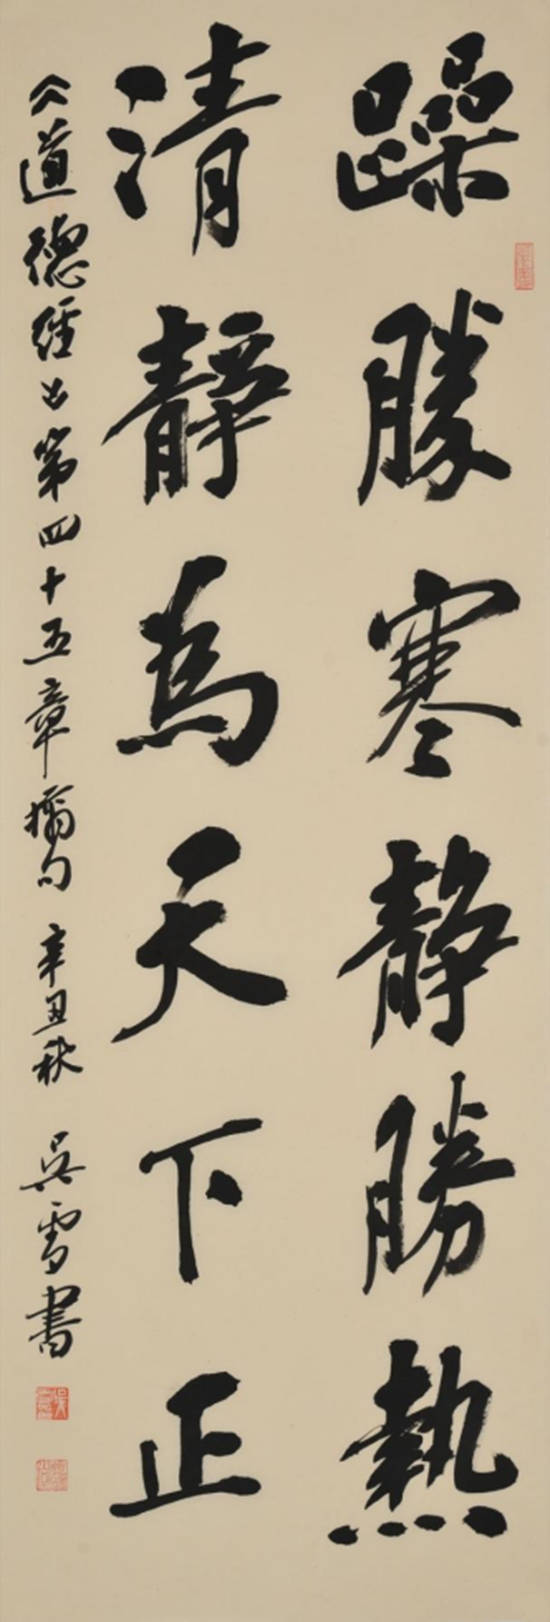 躁勝寒靜勝熱
清靜為天下正
《道德經》第四十五章摘句 辛丑秋 吳雪書